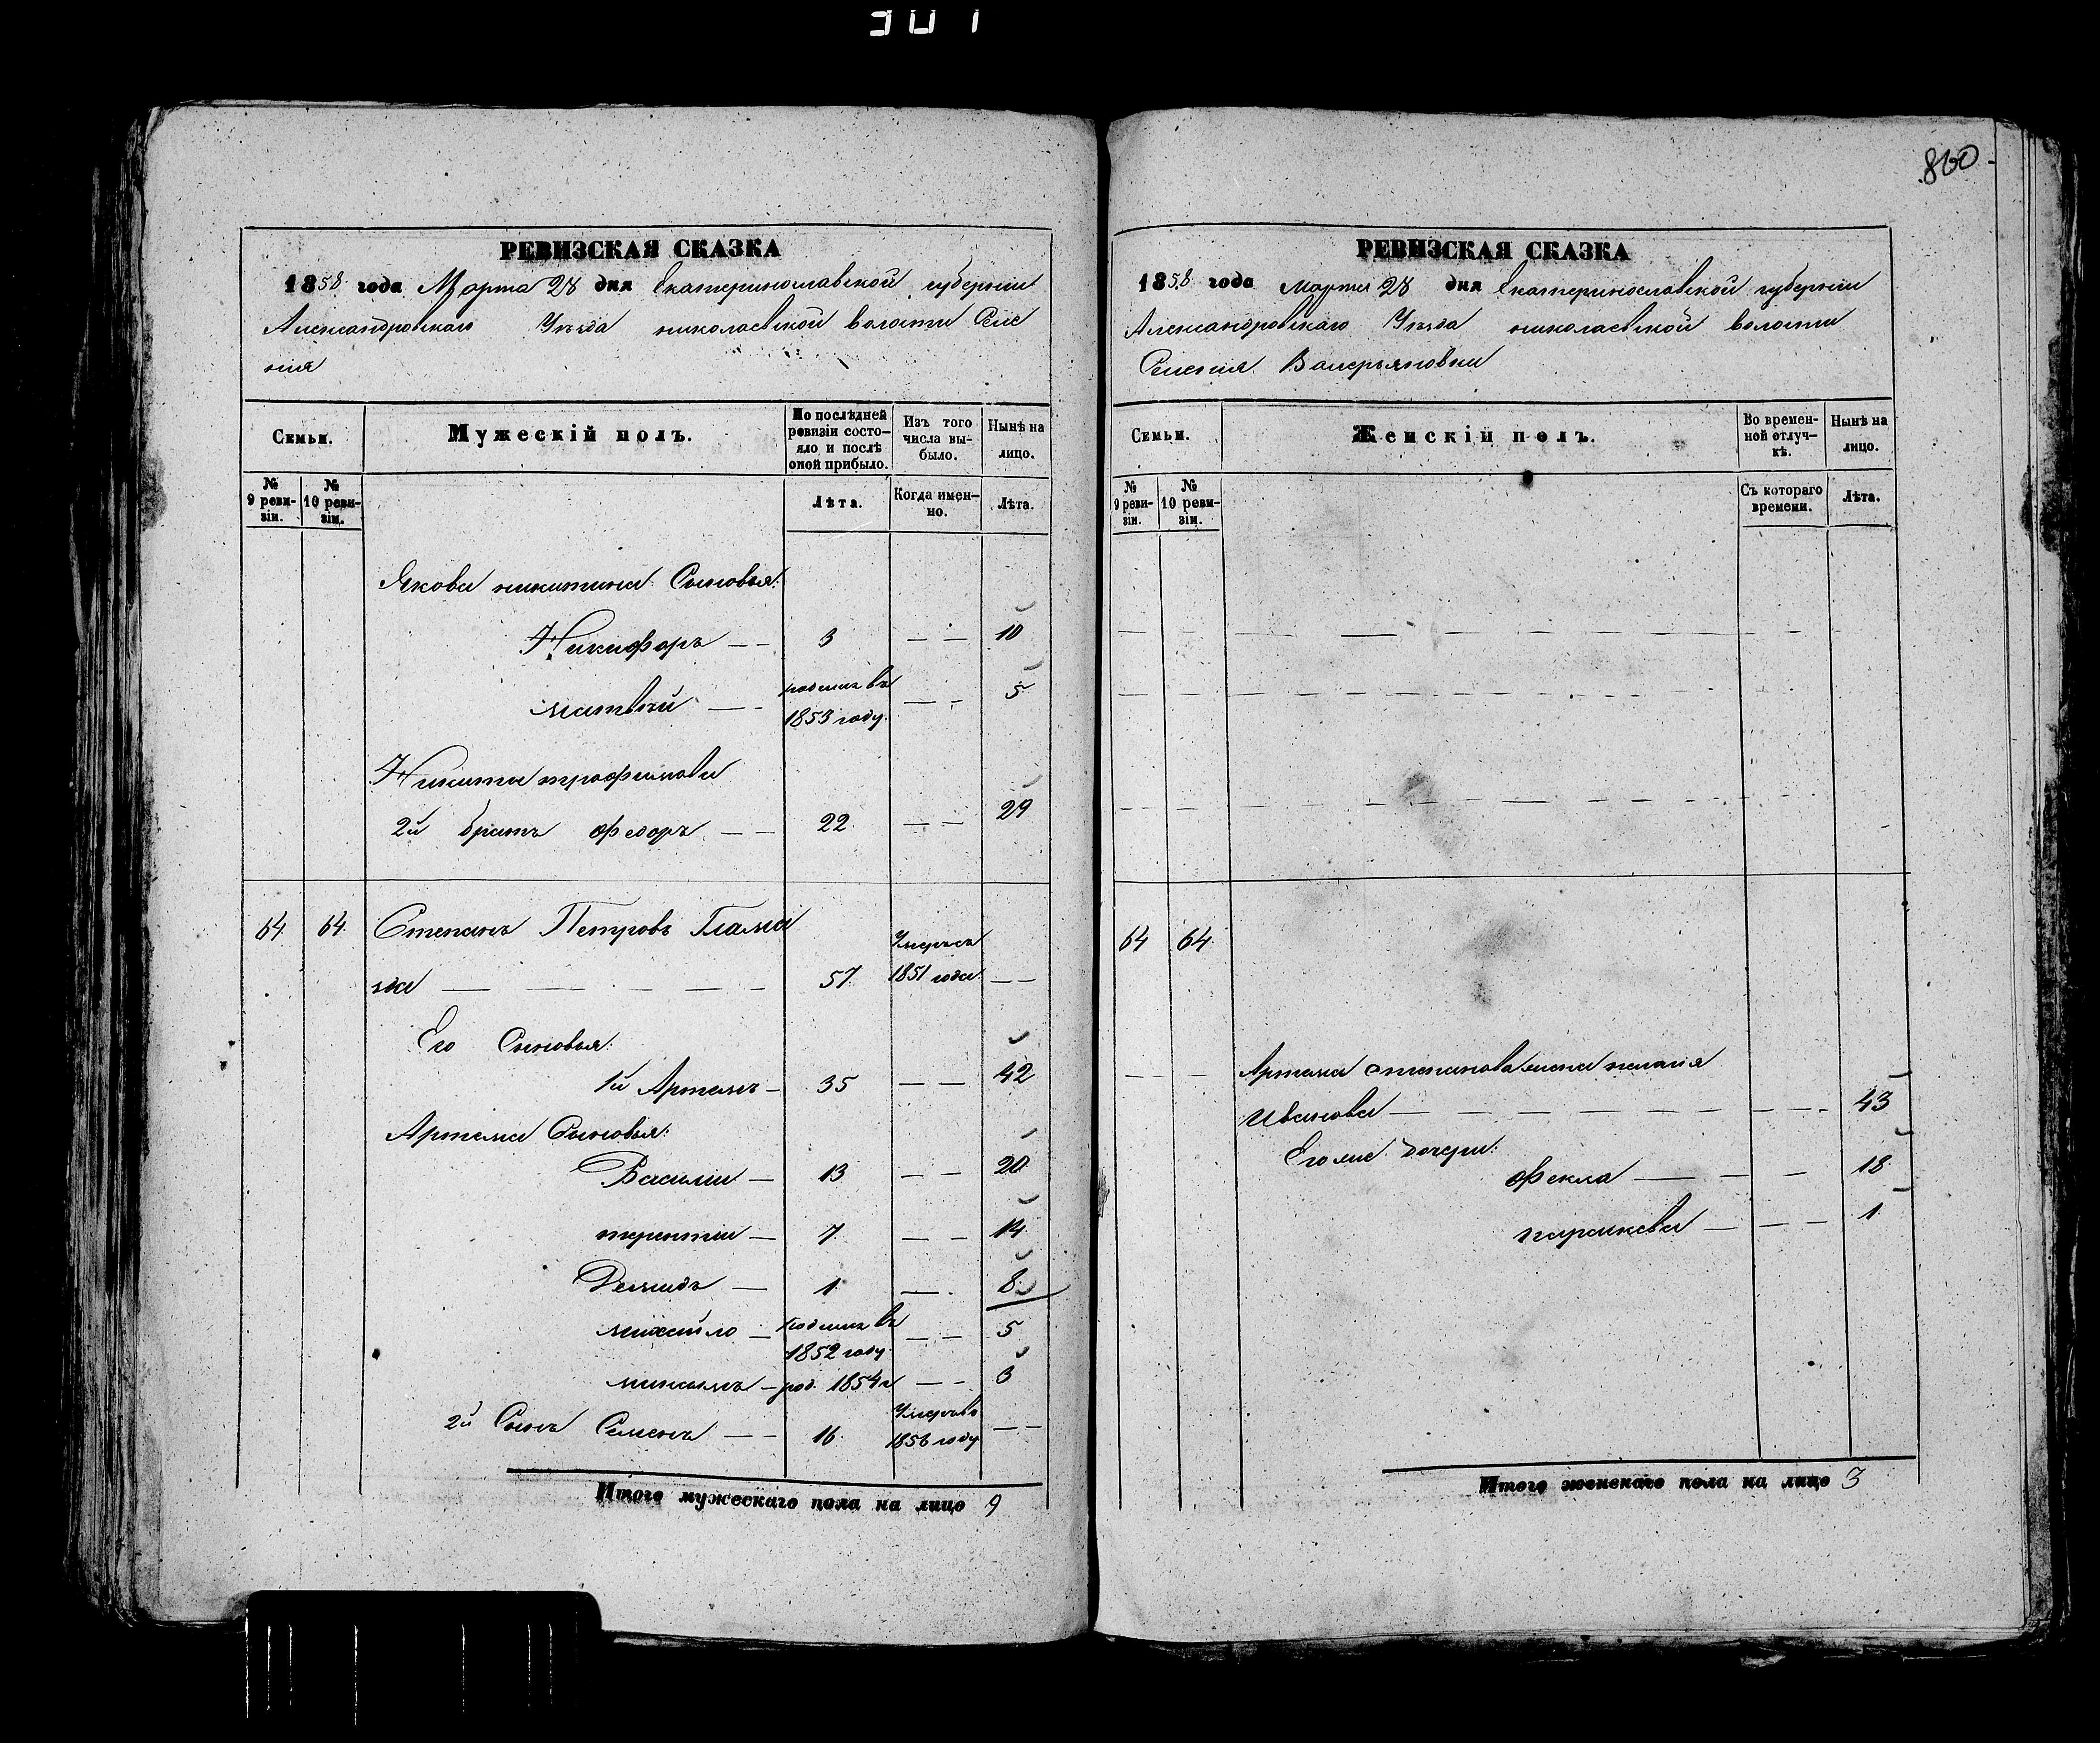 301
860
РЕВИЗСКАЯ СКАЗКА
1858 года Марта 28 дня Екатеринославской губернии
Александровскаго Уѣзда николаевской волости Селе
нія
Семьи.
Мужескій полъ.
По послѣдней ревизіи состо-яло и послѣ оной прибыло.
Изъ того числа вы-было.
Нынѣ на лицо.
№ 9 реви-зіи.
№ 10 реви-зіи.
Лѣта.
Когда имен-но.
Лѣта.
Якова никитина Сыновья:
Никифоръ — — 3 — — 10
матвѣй — — родился въ 1853 году — — 5
Никиты трофимова
2й братъ федоръ — — 22 — — 29
64. 64. Степанъ Петровъ
— — — — — 57 Умеръ съ 1851 года — —
Его Сыновья:
1й Артемъ — 35 — — 42
Артема Сыновья:
Василий — 13 — — 20
терентий — 7 — — 14
Демидъ — 1 — 8
михайло — родился въ 1852 году — — 5
— род. 1854 г — — 3
2й Сынъ Семенъ — — 16 Умеръ въ 1856 году — —
Итого мужескаго пола на лицо 9
РЕВИЗСКАЯ СКАЗКА
1858 года марта 28 дня Екатеринославской губернии
Александровскаго Уѣзда николаевской волости
Селения Валерьяновки
Семьи.
Женскій полъ.
Во времен-ной отлуч-кѣ.
Нынѣ на лицо.
№ 9 реви-зіи.
№ 10 реви-зіи.
Съ котораго времени.
Лѣта.
64 64.
Артема степанова жена
Иванова — — — — — — — — 43
Его же дочери:
фекла — — — 18
парасковья — — — 1
Итого женскаго пола на лицо 3